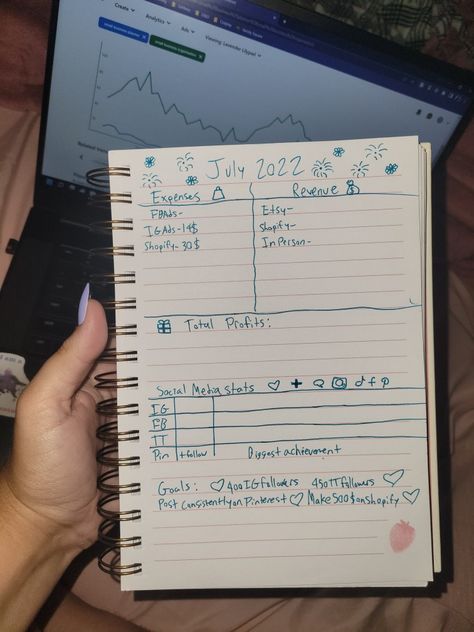 Create
Analytics
Ads
Viewing: Lavender Lilypad
small business planner
small business organization
Related
July 2022
Expenses
Revenue
FBAds-
Etsy-
IGAds-14$
Shopify-
Shopify-30$
In Person-
Total Profits:
Social Media Stats
IG
FB
TT
Pin
+follow
Biggest achievement
Goals: 400 IG followers 450 TT followers
Post consistently on Pinterest Make 500$ on Shopify